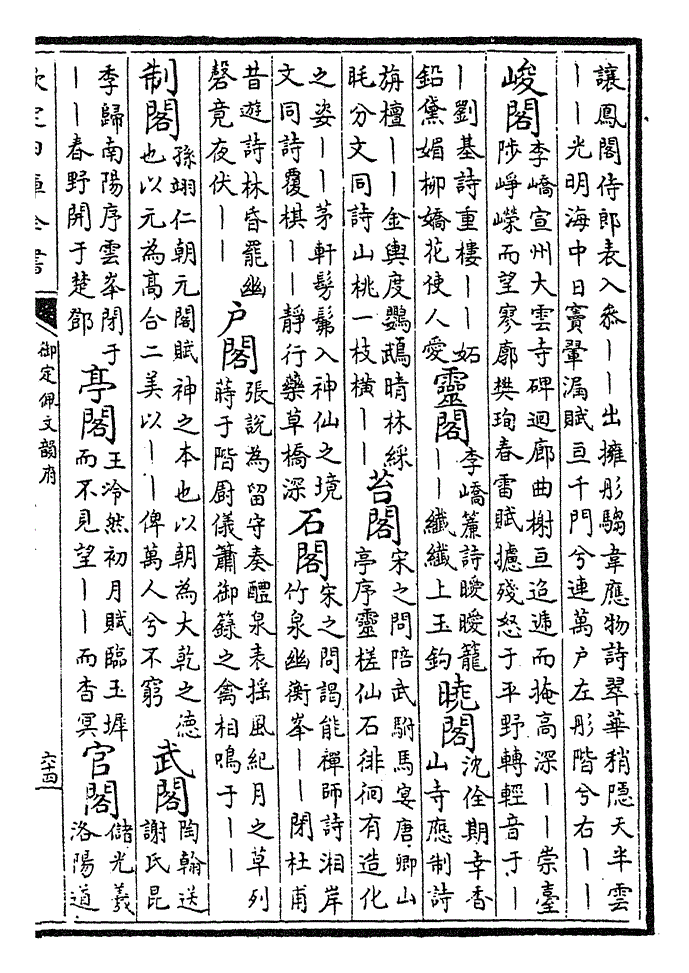 讓鳳閣侍郎表入叅丨丨出擁彤騶韋應物詩翠華稍隱天半雲
丨丨光明海中日竇鞏漏賦亘千門兮連萬户左彤階兮右丨丨
峻閣
李嶠宣州大雲寺碑迴廊曲榭亘迢遞而掩高深丨丨崇臺
陟崢嶸而望寥廓樊珣春雷賦攄殘怒于平野轉輕音于丨
丨劉基詩重樓丨丨妬
鉛黛媚柳嬌花使人愛
靈閣
李嶠簾詩曖曖籠
丨丨纖纖上玉鈎
曉閣
沈佺期幸香
山寺應制詩
旃檀丨丨金輿度鸚鵡晴林綵
毦分文同詩山桃一枝橫丨丨
苔閣
宋之問陪武駙馬宴唐卿山
亭序靈槎仙石徘徊有造化
之姿丨丨茅軒髣髴入神仙之境
文同詩覆棋丨丨靜行藥草橋深
石閣
宋之問謁能禪師詩湘岸
竹泉幽衡峯丨丨閉杜甫
昔遊詩林昏罷幽
磬竟夜伏丨丨
户閣
張說為留守奏醴泉表揺風紀月之草列
蒔于階廚儀簫御籙之禽相鳴于丨丨
制閣
孫翊仁朝元閣賦神之本也以朝為大乾之德
也以元為髙合二美以丨丨俾萬人兮不窮
武閣
陶翰送
謝氏昆
季歸南陽序雲峯閉于
丨丨春野開于楚鄧
亭閣
王泠然初月賦臨玉墀
而不見望丨丨而杳冥
官閣
儲光羲
洛陽道
御定佩文韻府
六十四